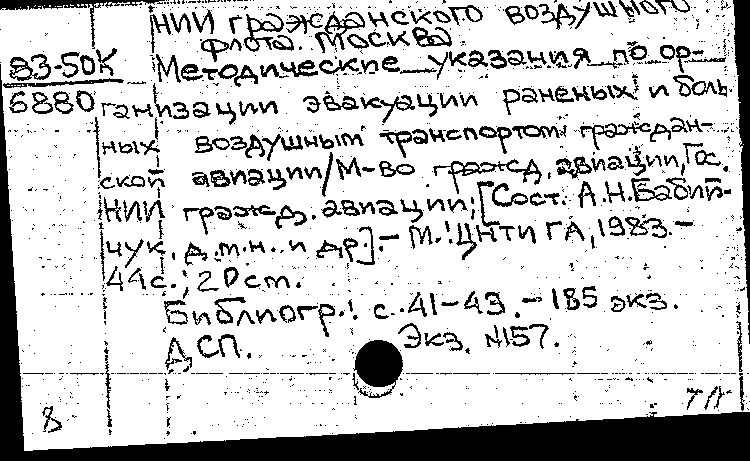 НИИ гражданского воздушного
флота. Москва
83-50К
Методические указания по ор-
6880
ганизации эвакуации раненых и боль
ных воздушным транспортом граждан-
ской авиации/М-во гражд. авиации, Гос.
НИИ гражд. авиации; [Сост. А.Н.Бабий-
чук, д.м.н. и др.].- М.: ЦНТИ ГА, 1983.-
44с.; 20см.
Библиогр.: с.41-43.- 185 экз.
ДСП. Экз. №157.
8